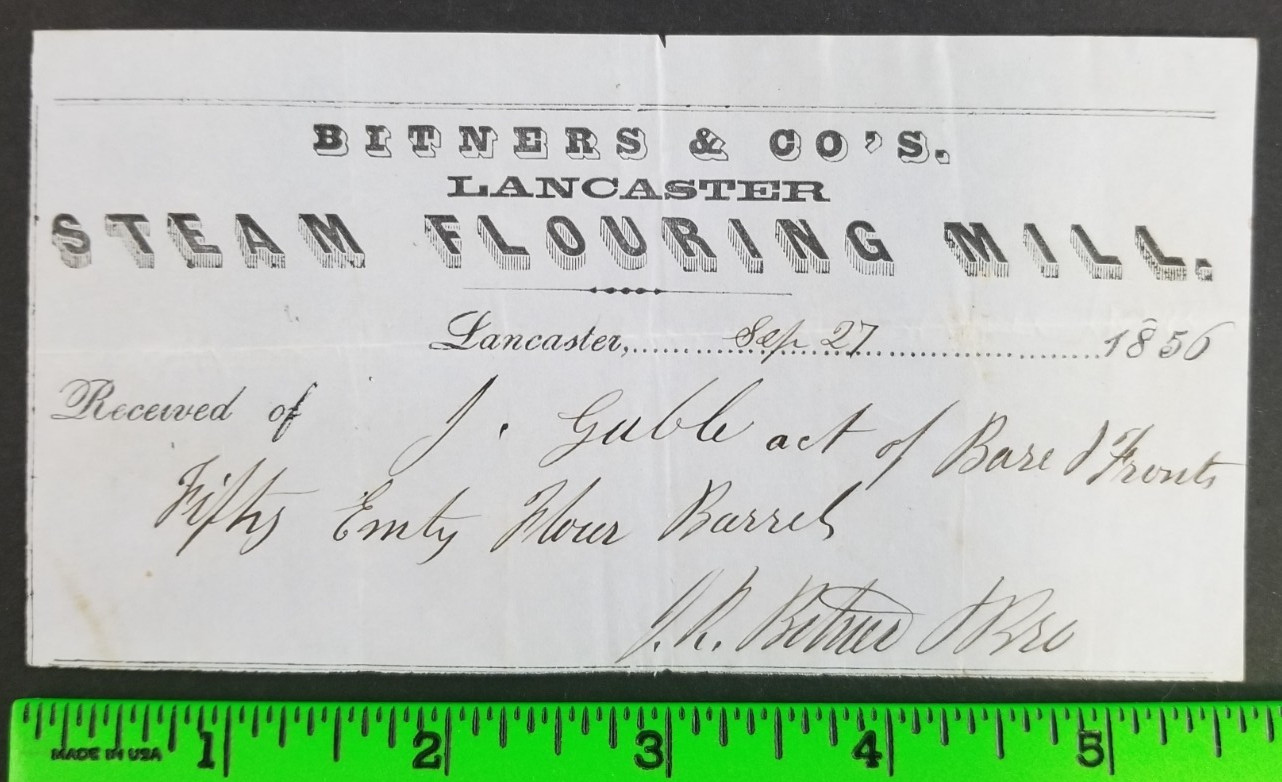 BITNERS & CO'S.
LANCASTER
STEAM FLOURING MILL.
Lancaster, Sep 27 1856
Received of J. Gable act of Bare & Fronts
Fifty Emty Flour Barrels
J. R. Bitner & Bro
MADE IN USA 1 2 3 4 5